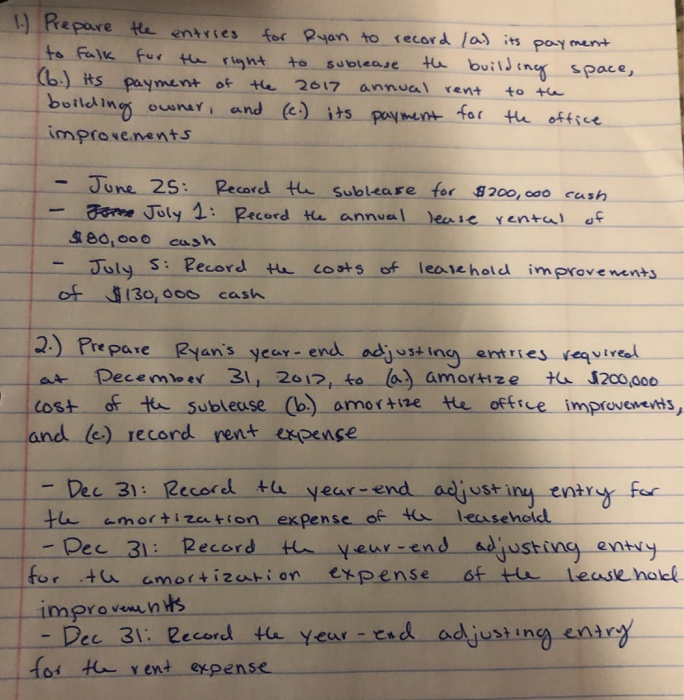 1.) Prepare the entries for Ryan to record (a) its payment
to Falk for the right to sublease the building space,
(b.) its payment of the 2017 annual rent to the
building owner, and (c.) its payment for the office
improvements
- June 25: Record the sublease for $200,000 cash
- July 1: Record the annual lease rental of
$80,000 cash
- July 5: Record the costs of leasehold improvements
of $130,000 cash
2.) Prepare Ryan's year-end adjusting entries required
at December 31, 2017, to (a.) amortize the $200,000
cost of the sublease (b.) amortize the office improvements,
and (c.) record rent expense
- Dec 31: Record the year-end adjusting entry for
the amortization expense of the leasehold
- Dec 31: Record the year-end adjusting entry
for the amortization expense of the leasehold
improvements
- Dec 31: Record the year-end adjusting entry
for the rent expense